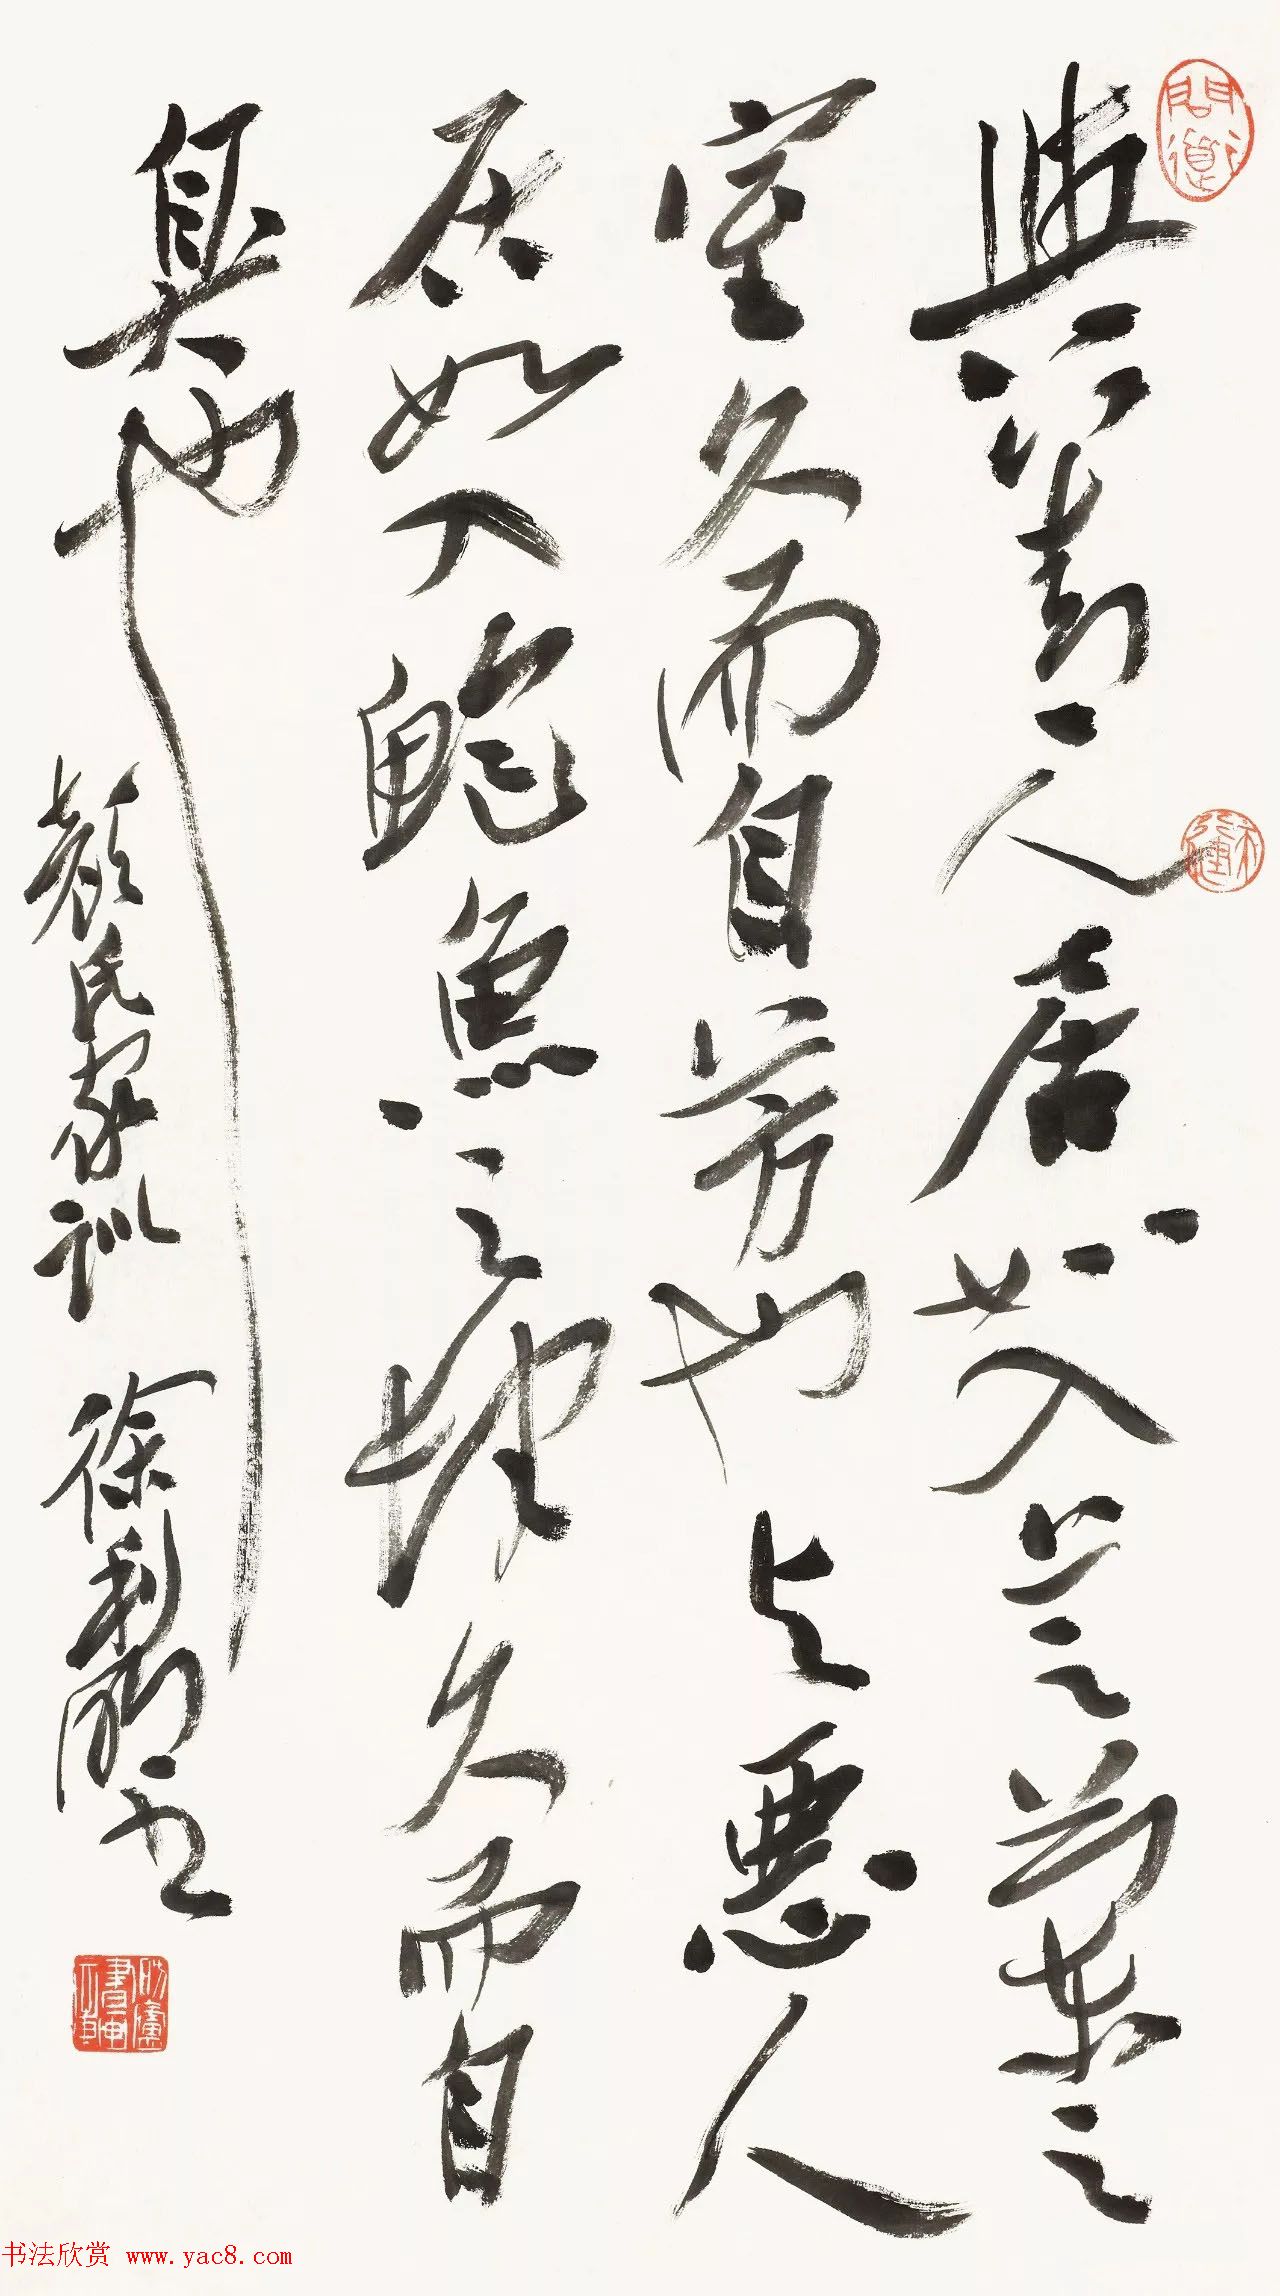 與善人居如入芝蘭之
室久而自芳也与惡人
居如入鮑魚之肆久而自
臭也
顏氏家訓 徐利明書
問道
書法欣赏 www.yac8.com